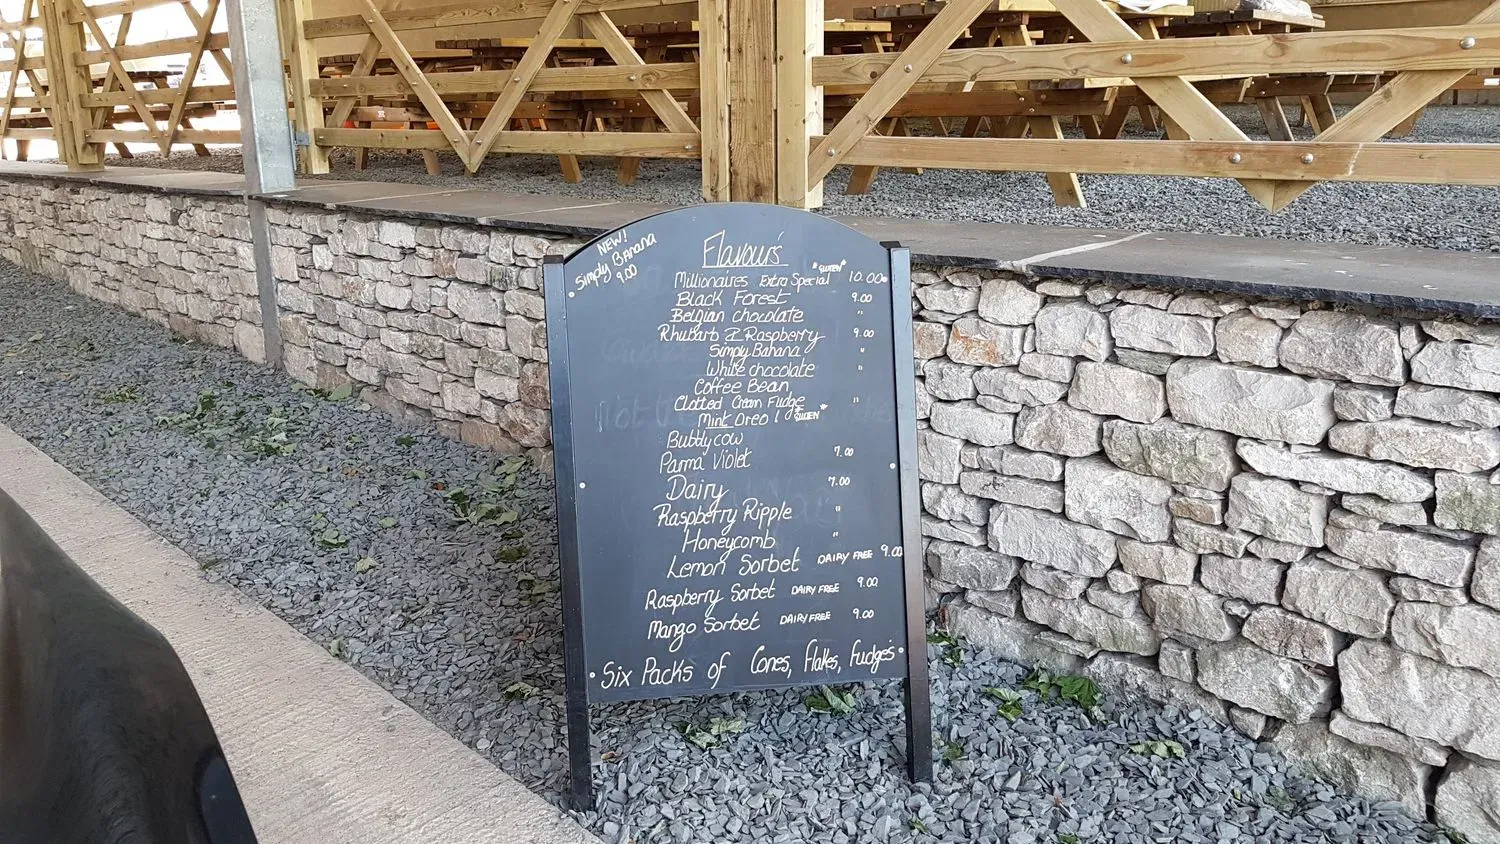 NEW!
Simply BANANA
9.00
Flavour's
Millionaires Extra Special "GLUTEN" 10.00
Black Forest 9.00
Belgian chocolate "
Rhubarb & Raspberry 9.00
Simply Banana "
White chocolate "
Coffee Bean
Clotted Cream Fudge "
Mint Oreo! "GLUTEN"
Bubbly cow
Parma Violet 7.00
Dairy 7.00
Raspberry Ripple "
Honeycomb "
Lemon Sorbet DAIRY FREE 9.00
Raspberry Sorbet DAIRY FREE 9.00
Mango Sorbet DAIRY FREE 9.00
Six Packs of Cones, Flakes, Fudge's